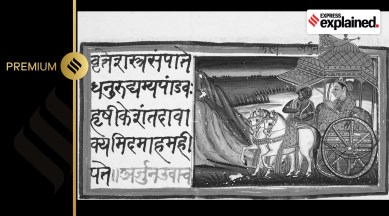 PREMIUM
EXPRESS
explained.
वृत्तेशस्त्रसंपाते
धनुरुद्यम्यपांडवः
हृषीकेशंतदावा
क्यमिदमाहमही
पते॥अर्जुनउवाच